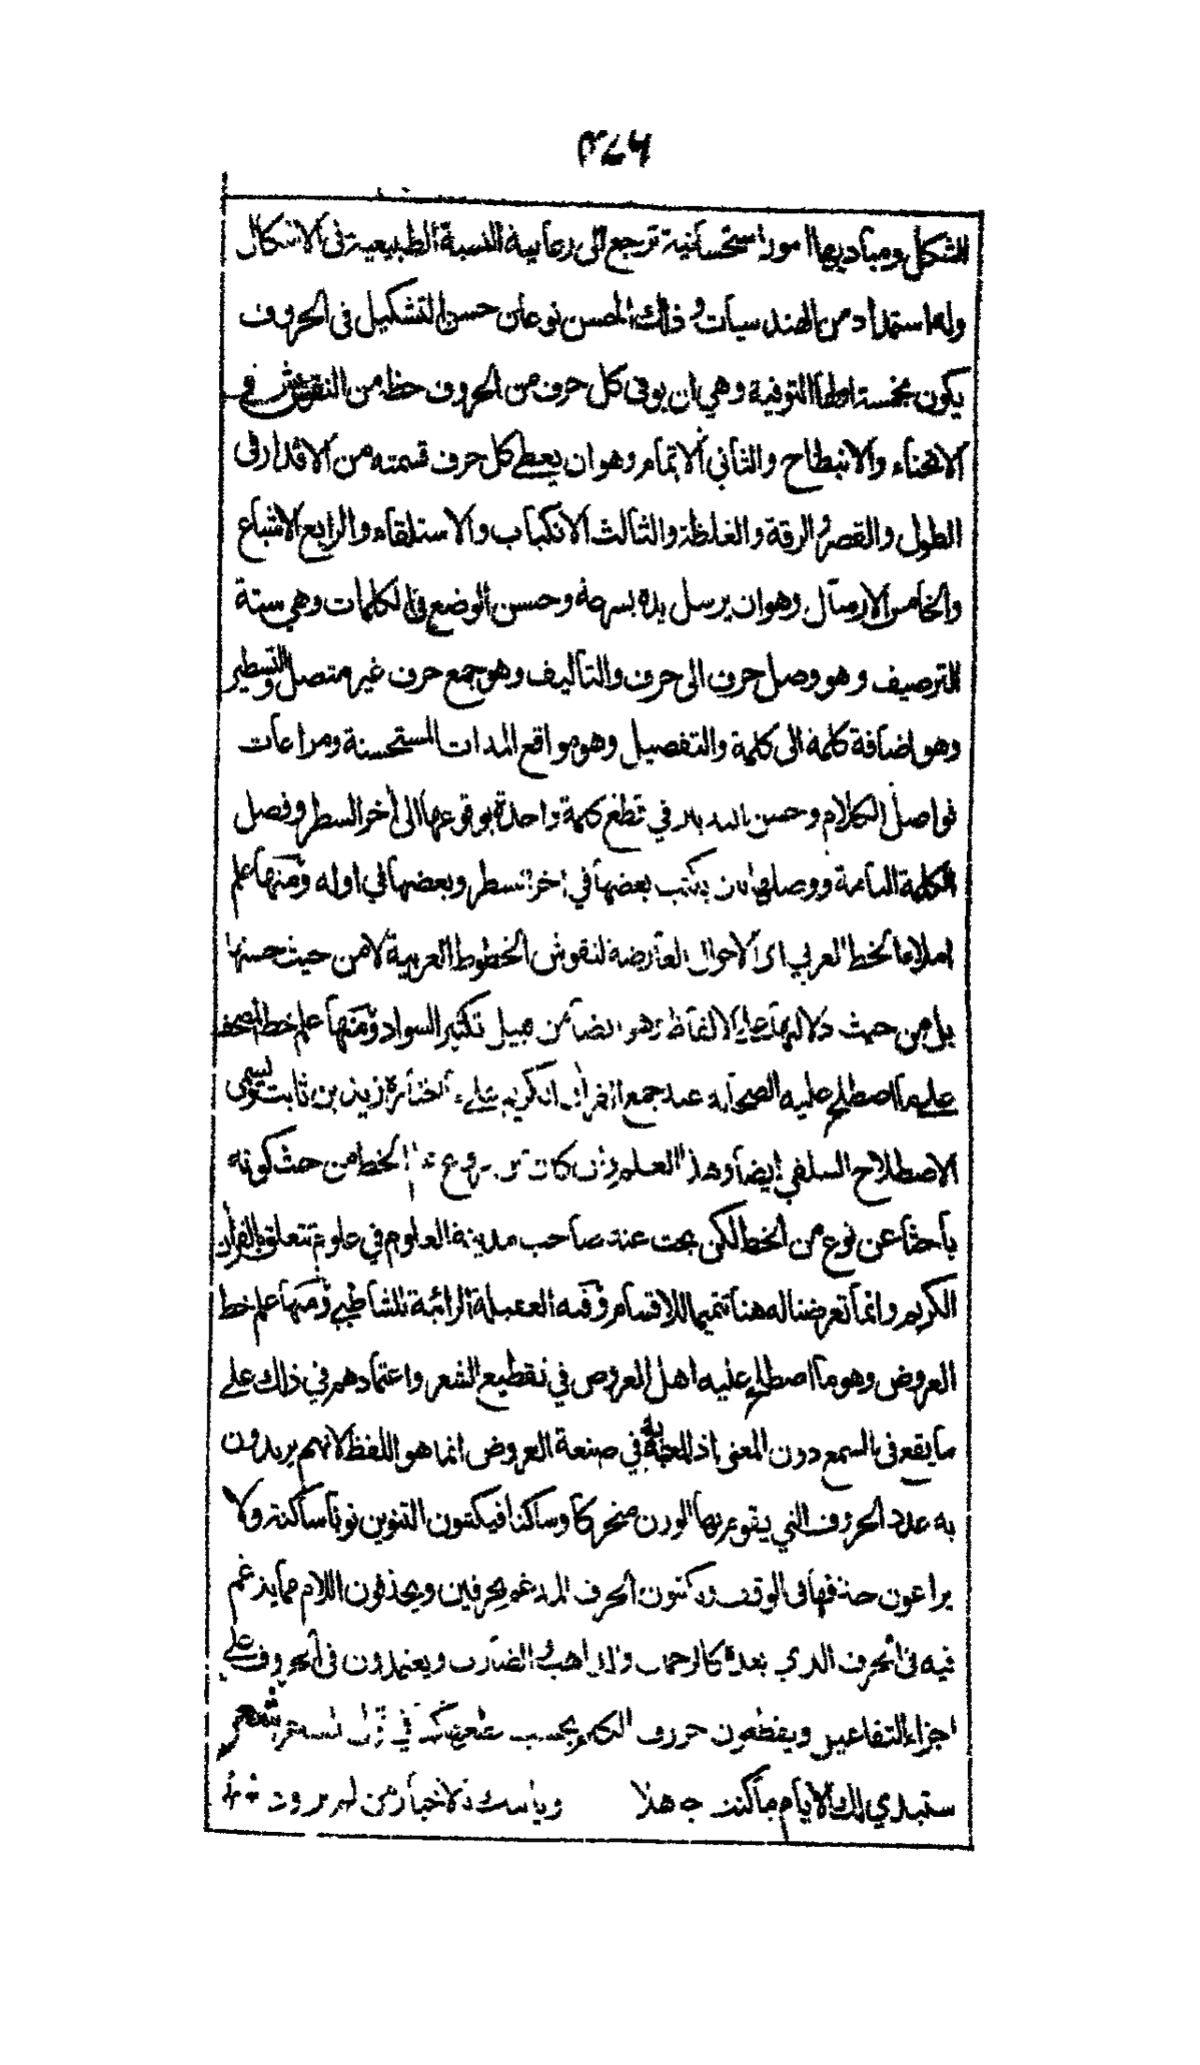 ٣٧٦
الشكل ومباديها امور استحسانية ترجع الى رعاية النسبة الطبيعية فى الاشكال
ولها استمداد من الهندسيات وذلك الحسن نوعان حسن التشكيل فى الحروف
يكون بخمسة اولها التوفية وهي ان يوفى كل حرف من الحروف حظه من النقوش في
الانحناء والانبطاح والثاني الاتمام وهو ان يعطى كل حرف قسمته من الاقدار فى
الطول والقصر والرقة والغلظة والثالث الانكباب والاستلقاء والرابع الاشباع
والخامس الارسال وهو ان يرسل يده بسرعة وحسن الوضع في الكلمات وهي ستة
الترصيف وهو وصل حرف الى حرف والتاليف وهو جمع حرف غير متصل والتسطير
وهو اضافة كلمة الى كلمة والتفصيل وهو مواقع المدات المستحسنة ومراعات
فواصل الكلام وحسن التدبير في قطع كلمة واحدة بوقوعها الى أخر السطر وفصل
الكلمة التامة ووصلها بان يكتب بعضها في أخر السطر وبعضها في اوله ومنها علم
املاء الخط العربي اى الاحوال العارضة لنقوش الخطوط العربية لا من حيث حسنها
بل من حيث دلالتها على الالفاظ وهو ايضا من قبيل تكثير السواد ومنها علم خط المصحف
على ما اصطلح عليه الصحابة عند جمع القرأن الكريم على ما اختاره زيد بن ثابت ويسمى
الاصطلاح السلفي ايضا وهذا العلم وان كان من فروع علم الخط من حيث كونه
باحثا عن نوع من الخط لكن بحث عنه صاحب مدينة العلوم في علوم تتعلق بالقرأن
الكريم وانما تعرضنا له هنا تتميما للاقسام وفيه العقيلة الرائية للشاطبي ومنها علم خط
العروض وهو ما اصطلح عليه اهل العروض في تقطيع الشعر واعتمادهم في ذلك على
ما يقع فى السمع دون المعنى اذ المعتد به في صنعة العروض انما هو اللفظ لانهم يريدون
به عدد الحروف التي يقوم بها الوزن متحركا وساكنا فيكتبون التنوين نونا ساكنة ولا
يراعون حذفها فى الوقف ويكتبون الحرف المدغم بحرفين ويحذفون اللام مما يدغم
فيه فى الحرف الذي بعده كالرحمن والذاهب والضارب ويعتمدون فى الحروف على
اجزاء التفاعيل ويقطعون حروف الكلم بحسب تقطيعها كما في قول الشاعر شعر
ستبدي لك الايام ما كنت جاهلا ويأتيك بالاخبار من لم تزود